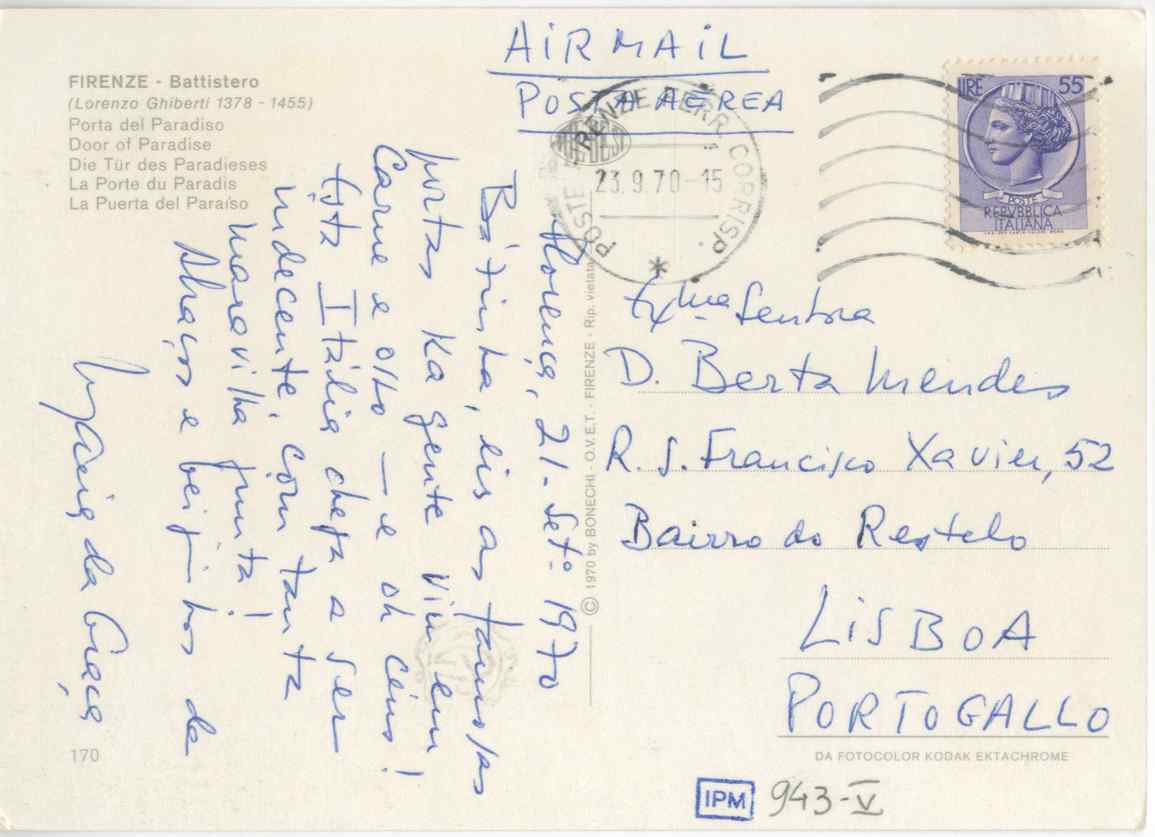 FIRENZE - Battistero
(Lorenzo Ghiberti 1378 - 1455)
Porta del Paradiso
Door of Paradise
Die Tür des Paradieses
La Porte du Paradis
La Puerta del Paraíso
AIRMAIL
POSTA AÉREA
POSTE FIRENZE FERR. CORRISP.
23.9.70-15
LIRE 55
POSTE
REPVBBLICA
ITALIANA
Florença, 21-Setº 1970
Bètinha, eis as famosas
portas Ka gente viu em
Carne e olho — e oh céus!
Esta Itália chega a ser
indecente, com tanta
maravilha junta!
Abraços e beijinhos da
Maria da Graça
© 1970 by BONECHI - O.V.E.T. - FIRENZE - Rip. vietata
Exma Senhora
D. Berta Mendes
R. S. Francisco Xavier, 52
Bairro do Restelo
LISBOA
PORTOGALLO
170
DA FOTOCOLOR KODAK EKTACHROME
IPM 943-V